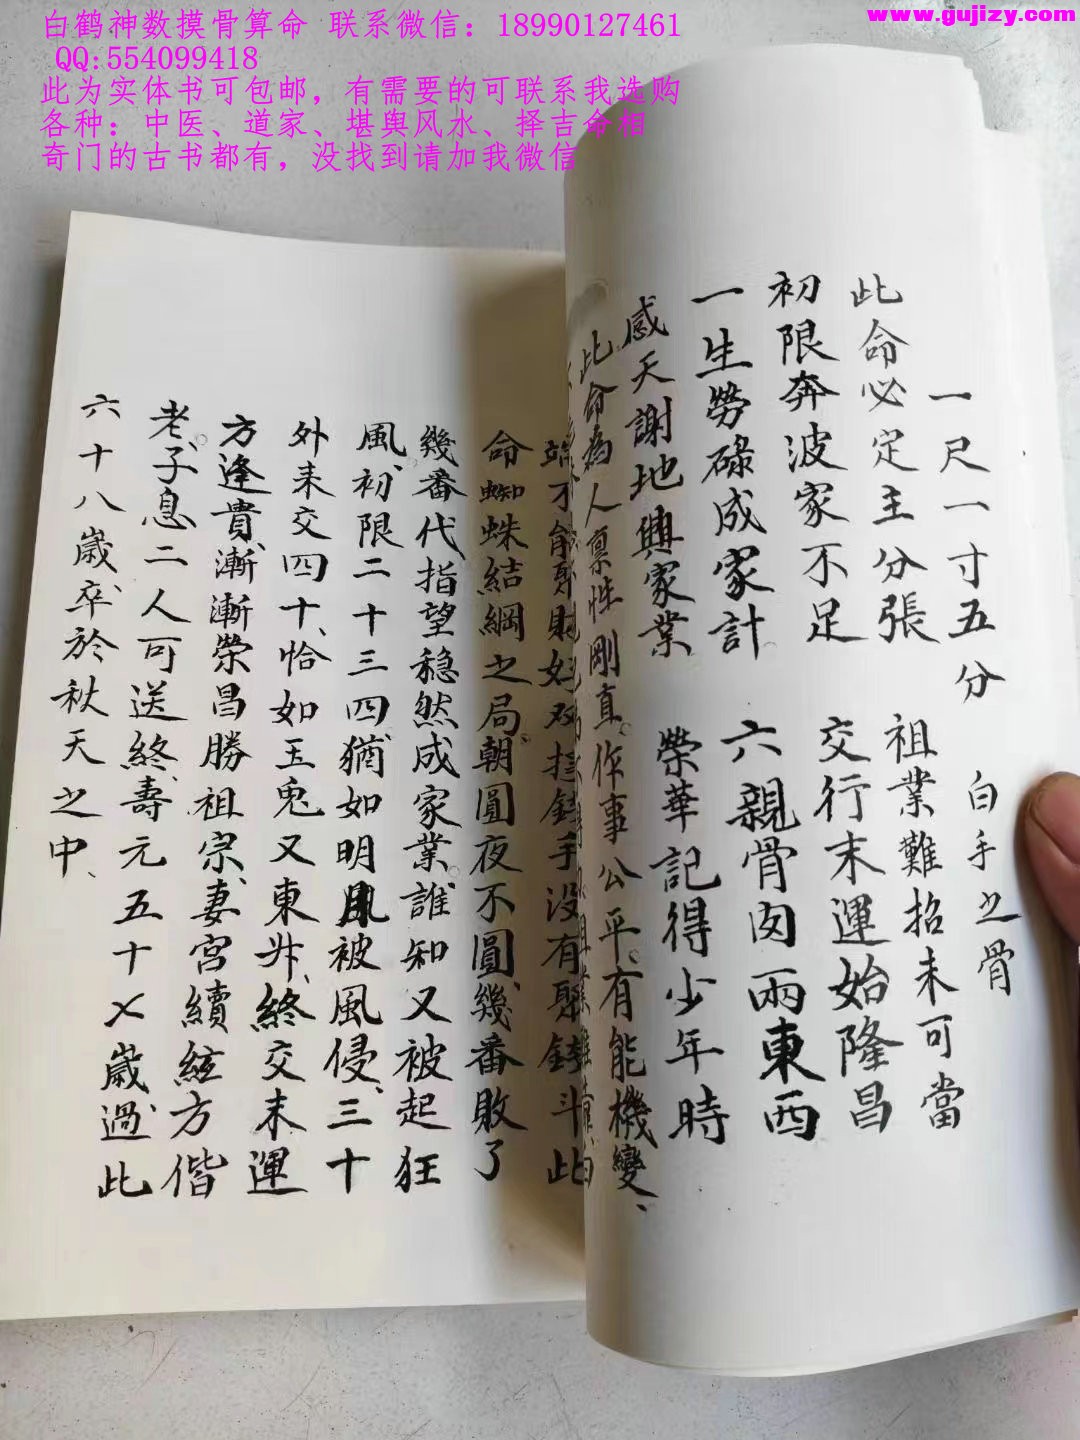 白鹤神数摸骨算命 联系微信：18990127461
QQ:554099418
此为实体书可包邮，有需要的可联系我选购
各种：中医、道家、堪舆风水、择吉命相
奇门的古书都有，没找到请加我微信
www.gujizy.com
一尺一寸五分 白手之骨
此命必定主分張 祖業難招未可當
初限奔波家不足 交行末運始隆昌
一生勞碌成家計 六親骨肉兩東西
感天謝地興家業 榮華記得少年時
此命為人禀性剛直作事公平有能機變、
命蜘蛛結網之局朝圓夜不圓、幾番敗了
幾番代指望穩然成家業誰知又被起狂
風、初限二十三四猶如明月被風侵、三十
外来交四十、恰如玉兎又東升、終交末運
方逢貴、漸漸榮昌勝祖宗、妻宮續絃方偕
老、子息二人可送終、壽元五十七歲過、此
六十八歲、卒於秋天之中、